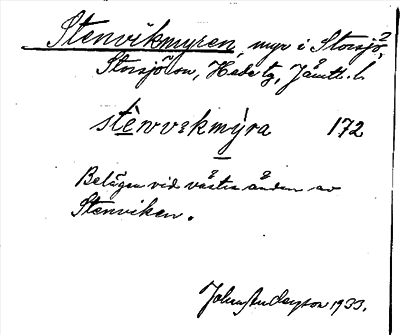 Stenvikmyren, myr i Storsjö,
Storsjö sn, Hede tg, Jämtl. l.
stènvɩkmỳra 172
Belägen vid västra änden av
Stenviken.
John Anderson 1933.